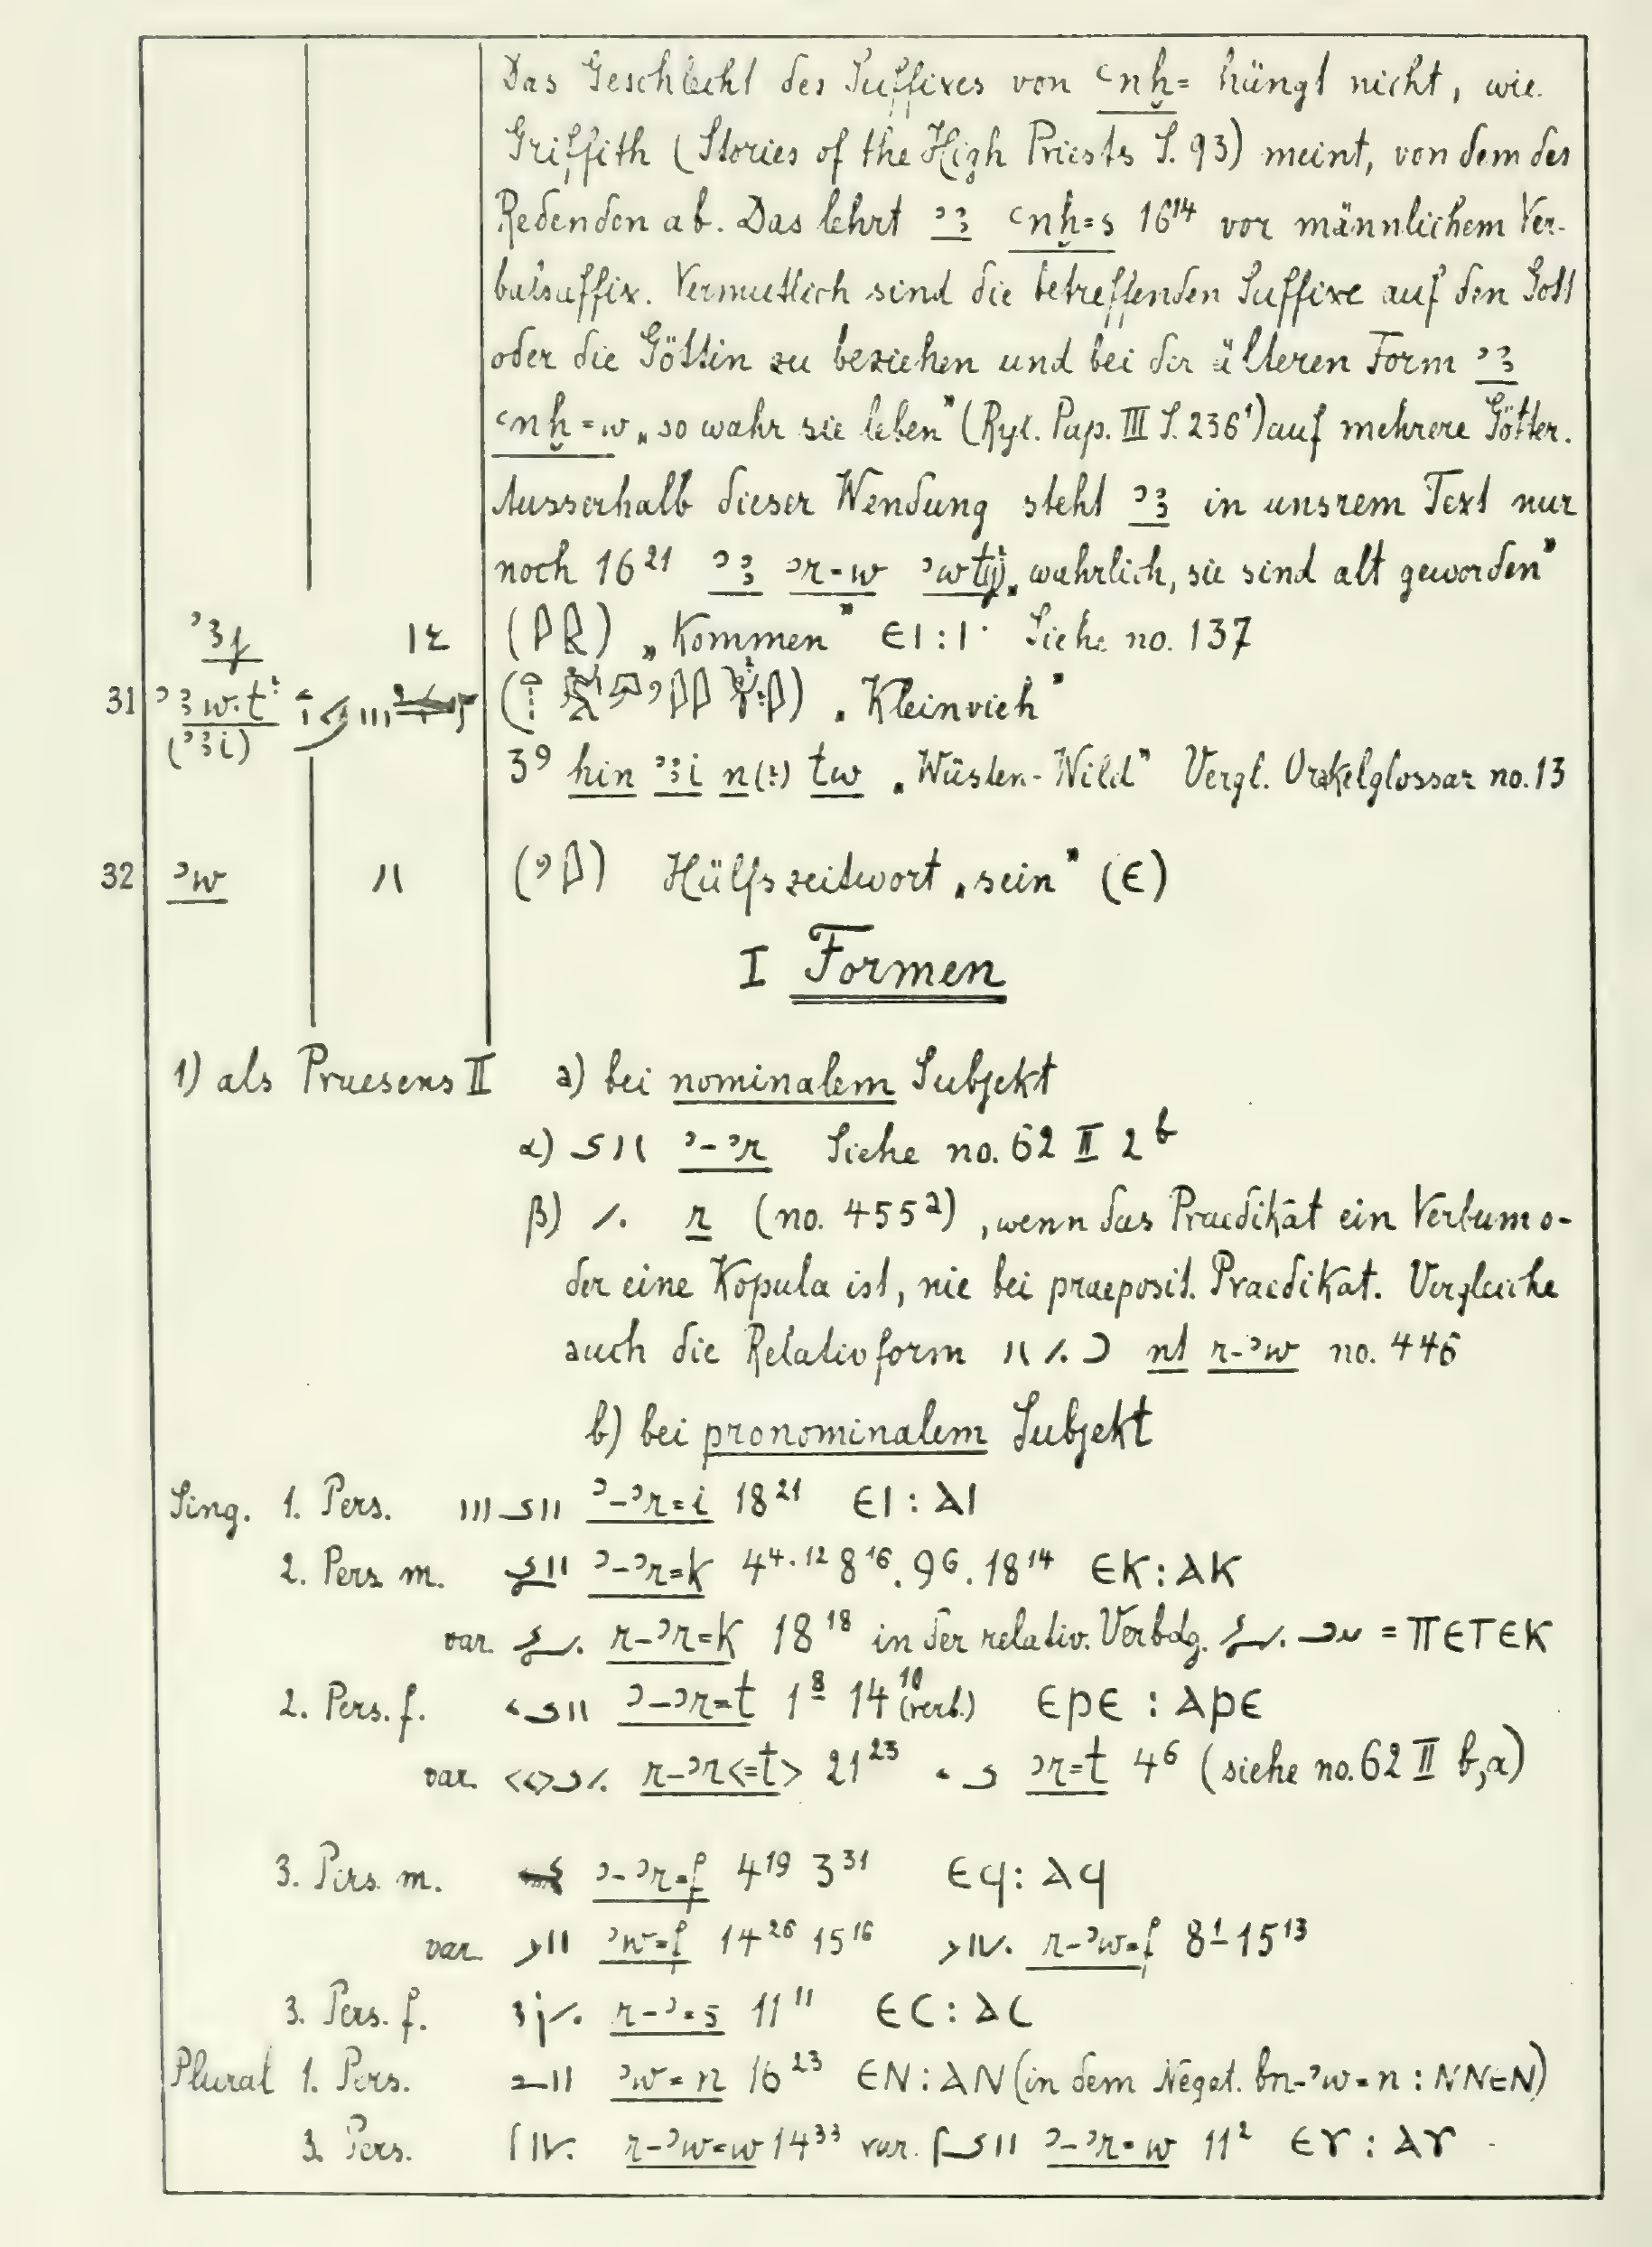 Das Geschlecht des Suffixes von ꜥnḫ= hängt nicht, wie
Griffith (Stories of the High Priests S. 93) meint, von dem des
Redenden ab. Das lehrt ꜣꜣ ꜥnḫ=s 16¹⁴ vor männlichem Ver-
balsuffix. Vermutlich sind die betreffenden Suffixe auf den Gott
oder die Göttin zu beziehen und bei der älteren Form ꜣꜣ
ꜥnḫ=w „so wahr sie leben" (Ryl. Pap. III S. 236¹) auf mehrere Götter.
Ausserhalb dieser Wendung steht ꜣꜣ in unsrem Text nur
noch 16²¹ ꜣꜣ ꜣr-w „wahrlich, sie sind alt geworden"
„Kommen" ⲉⲓ : ⲓ Siehe no. 137
31 ꜣꜣw.t (ꜣꜣi) „Kleinvieh"
3⁹ hin ꜣꜣi n(?) tw „Wüsten-Wild" Vergl. Orakelglossar no. 13
32 ꜣw Hülfszeitwort „sein" (ⲉ)
I Formen
1) als Praesens II a) bei nominalem Subjekt
α) ꜣ-ꜣr Siehe no. 62 II 2ᵇ
β) r (no. 455ᵃ), wenn das Praedikat ein Verbum o-
der eine Kopula ist, nie bei praeposit. Praedikat. Vergleiche
auch die Relativform nt r-ꜣw no. 446
b) bei pronominalem Subjekt
Sing. 1. Pers. ꜣ-ꜣr=i 18²¹ ⲉⲓ : ⲁⲓ
2. Pers m. ꜣ-ꜣr=k 4⁴·¹² 8¹⁶. 9⁶. 18¹⁴ ⲉⲕ : ⲁⲕ
var. r-ꜣr=k 18¹⁸ in der relativ. Verbdg. = ⲡⲉⲧⲉⲕ
2. Pers. f. ꜣ-ꜣr=t 1⁸ 14¹⁰ (verb.) ⲉⲣⲉ : ⲁⲣⲉ
var. r-ꜣr<=t> 21²³ ꜣr=t 4⁶ (siehe no. 62 II b,α)
3. Pers. m. ꜣ-ꜣr=f 4¹⁹ 3³¹ ⲉϥ : ⲁϥ
var. ꜣw=f 14²⁶ 15¹⁶ r-ꜣw=f 8¹ 15¹³
3. Pers. f. r-ꜣ=s 11¹¹ ⲉⲥ : ⲁⲥ
Plural 1. Pers. ꜣw=n 16²³ ⲉⲛ : ⲁⲛ (in dem Negat. bn-ꜣw=n : ⲛⲛⲉⲛ)
3. Pers. r-ꜣw=w 14³³ var. ꜣ-ꜣr=w 11² ⲉⲩ : ⲁⲩ